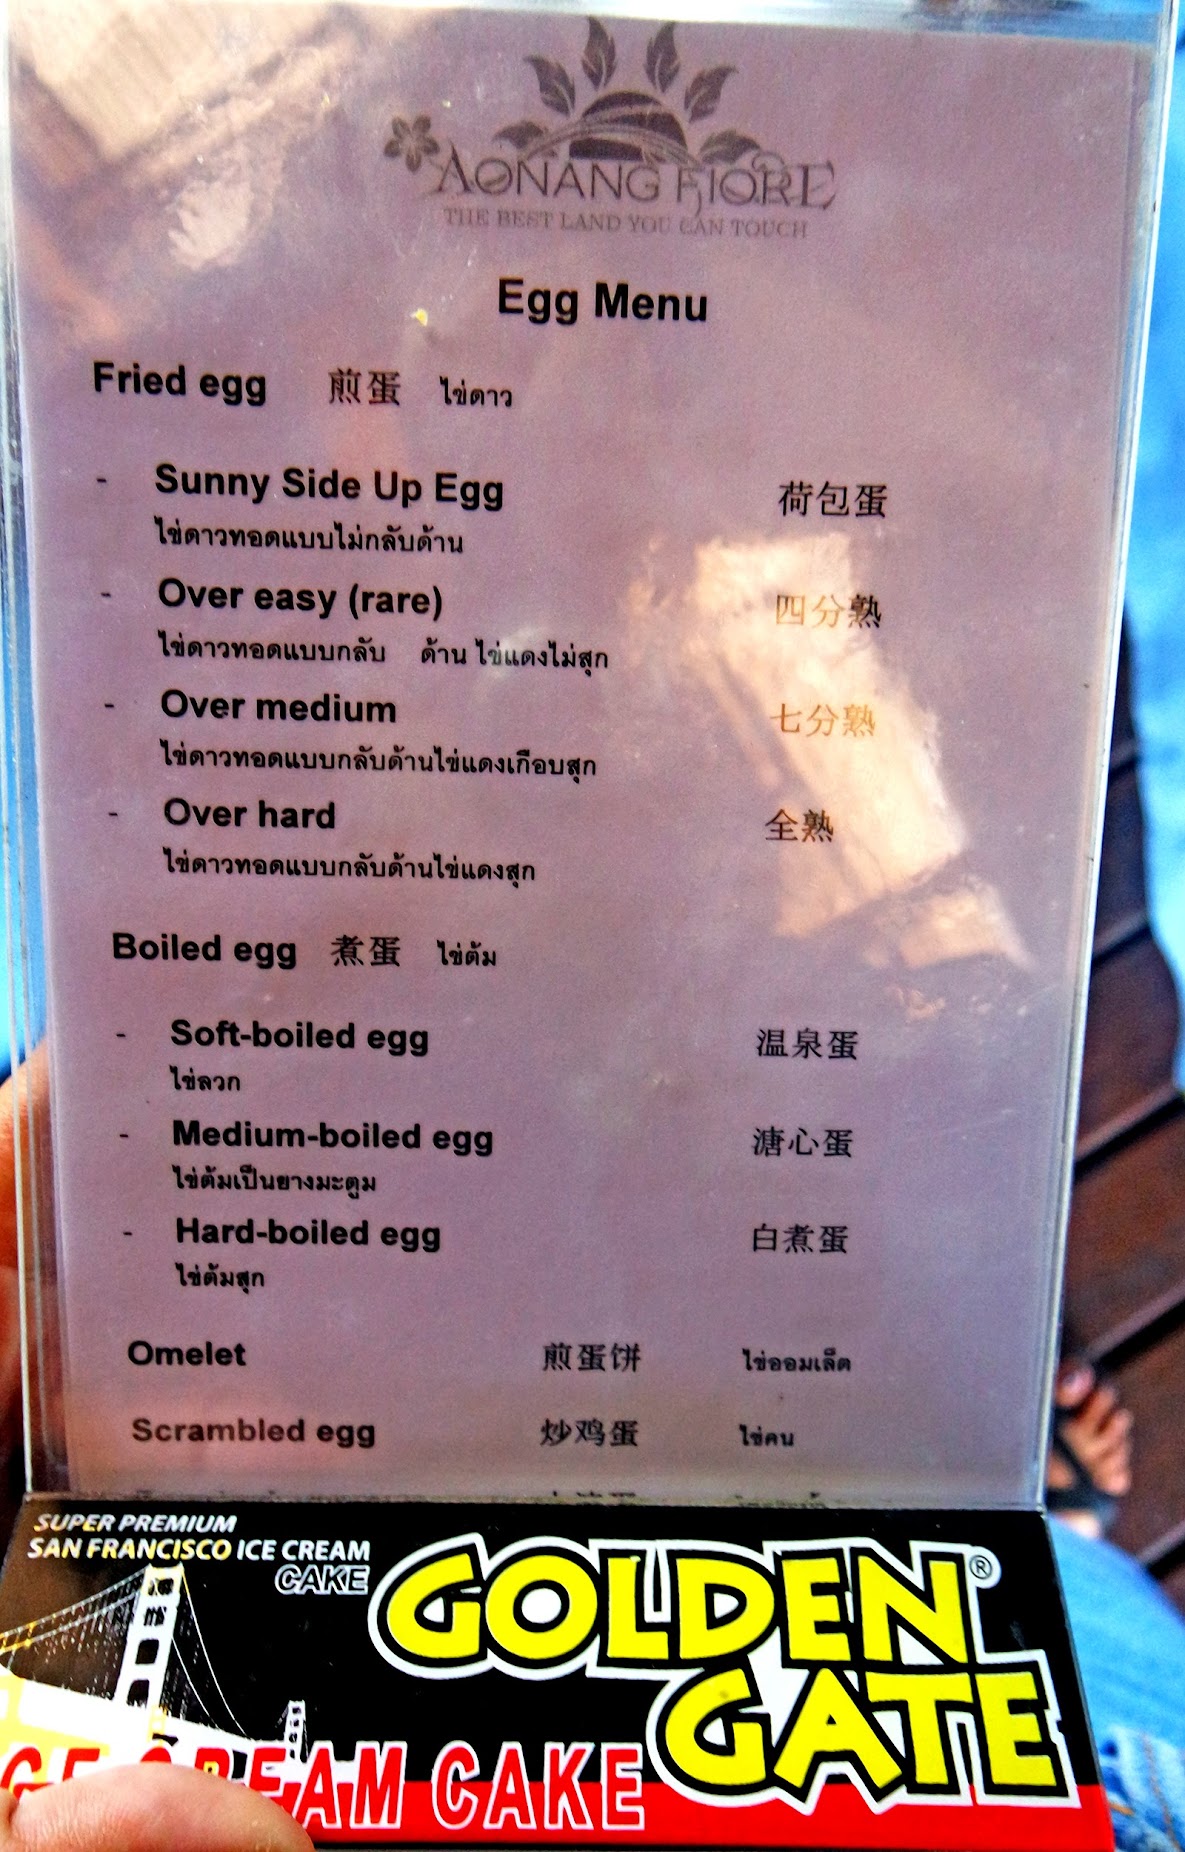 AONANG FIORE
THE BEST LAND YOU CAN TOUCH
Egg Menu
Fried egg 煎蛋 ไข่ดาว
- Sunny Side Up Egg 荷包蛋
ไข่ดาวทอดแบบไม่กลับด้าน
- Over easy (rare) 四分熟
ไข่ดาวทอดแบบกลับ ด้าน ไข่แดงไม่สุก
- Over medium 七分熟
ไข่ดาวทอดแบบกลับด้านไข่แดงเกือบสุก
- Over hard 全熟
ไข่ดาวทอดแบบกลับด้านไข่แดงสุก
Boiled egg 煮蛋 ไข่ต้ม
- Soft-boiled egg 温泉蛋
ไข่ลวก
- Medium-boiled egg 溏心蛋
ไข่ต้มเป็นยางมะตูม
- Hard-boiled egg 白煮蛋
ไข่ต้มสุก
Omelet 煎蛋饼 ไข่ออมเล็ต
Scrambled egg 炒鸡蛋 ไข่คน
SUPER PREMIUM
SAN FRANCISCO ICE CREAM
CAKE
GOLDEN®
GATE
CAKE